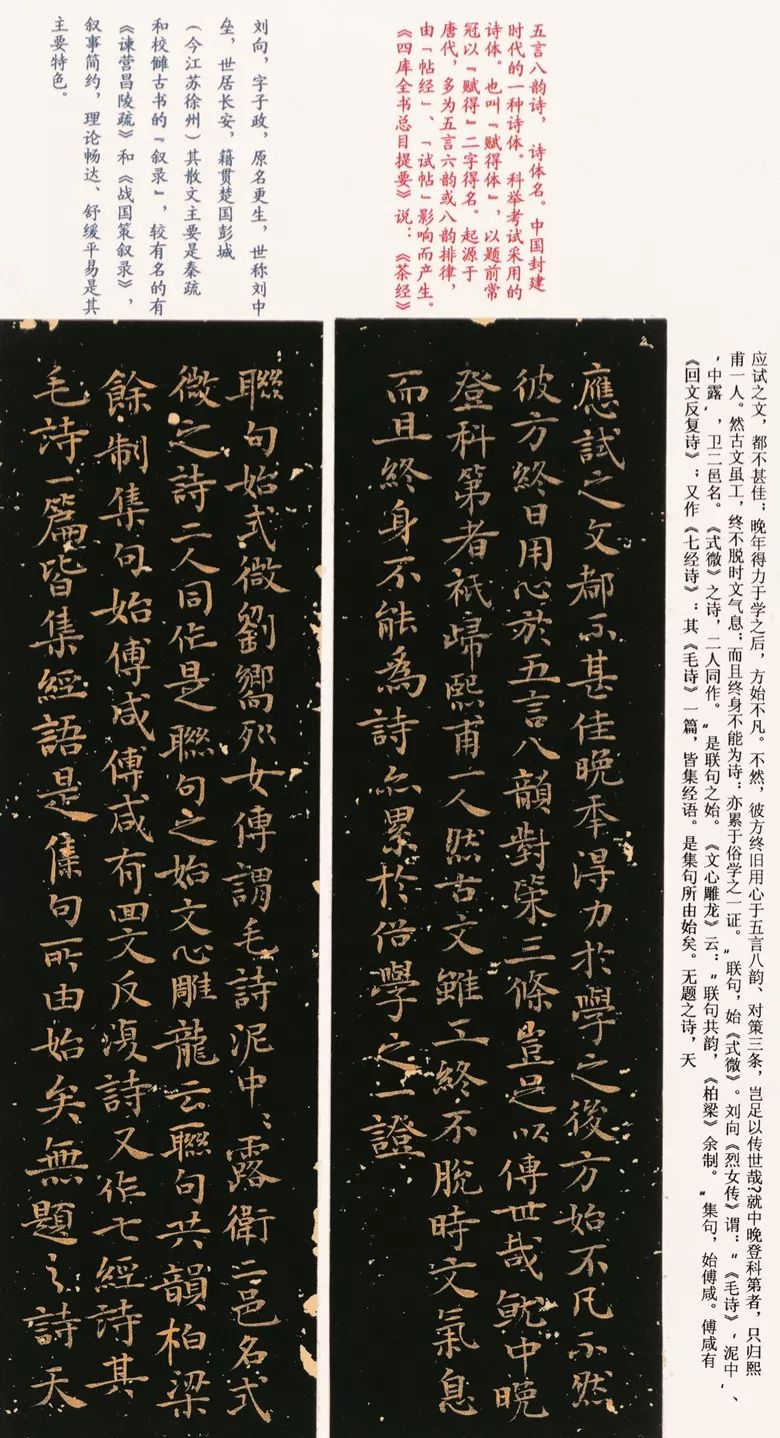 五言八韵诗，诗体名。中国封建
时代的一种诗体。科举考试采用的
诗体。也叫「赋得体」，以题前常
冠以「赋得」二字得名。起源于
唐代，多为五言六韵或八韵排律，
由「帖经」、「试帖」影响而产生。
《四库全书总目提要》说：《茶经》
刘向，字子政，原名更生，世称刘中
垒，世居长安，籍贯楚国彭城
（今江苏徐州）其散文主要是秦疏
和校雠古书的『叙录』，较有名的有
《谏营昌陵疏》和《战国策叙录》，
叙事简约，理论畅达、舒缓平易是其
主要特色。
应试之文，都不甚佳；晚年得力于学之后，方始不凡。不然，彼方终旧用心于五言八韵、对策三条，岂足以传世哉?就中晚登科第者，只归熙
甫一人。然古文虽工，终不脱时文气息；而且终身不能为诗：亦累于俗学之一证。"联句，始《式微》。刘向《烈女传》谓："《毛诗》'泥中'、
'中露'，卫二邑名。《式微》之诗，二人同作。"是联句之始。《文心雕龙》云："联句共韵，《柏梁》余制。"集句，始傅咸。傅咸有
《回文反复诗》；又作《七经诗》；其《毛诗》一篇，皆集经语。是集句所由始矣。无题之诗，天
應試之文都不甚佳晚年淂力於學之後方始不凡不然
彼方終日用心於五言八韻對策三條豈足以傳世哉就中晚
登科第者祇歸熙甫一人然古文雖工終不脫時文氣息
而且終身不能為詩亦累於俗學之一證
聯句始式微劉嚮列女傳謂毛詩泥中〻露衛二邑名式
微之詩二人同作是聯句之始文心雕龍云聯句共韻柏梁
餘制集句始傅咸傅咸有回文反復詩又作七經詩其
毛詩一篇皆集經語是集句所由始矣無題之詩天